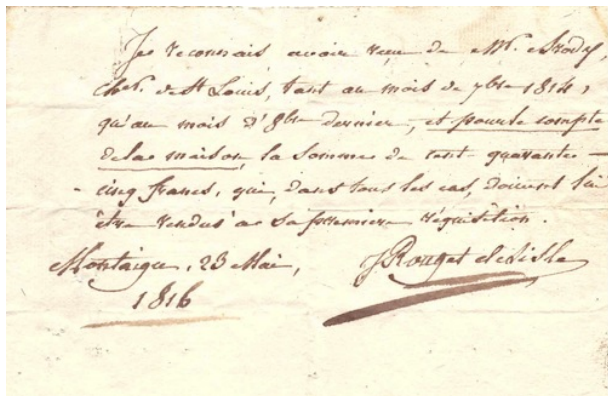 Je reconnais avoir reçu de Mr.
cher. de St Louis, tant au mois de 7bre 1814,
qu'au mois d'8bre dernier, et pour le compte
de la maison, la somme de cent-quarante-
cinq francs, qui, dans tous les cas, doivent lui
être rendus à sa première réquisition.
Montaigu, 23 Mai,
1816
J Rouget de Lisle